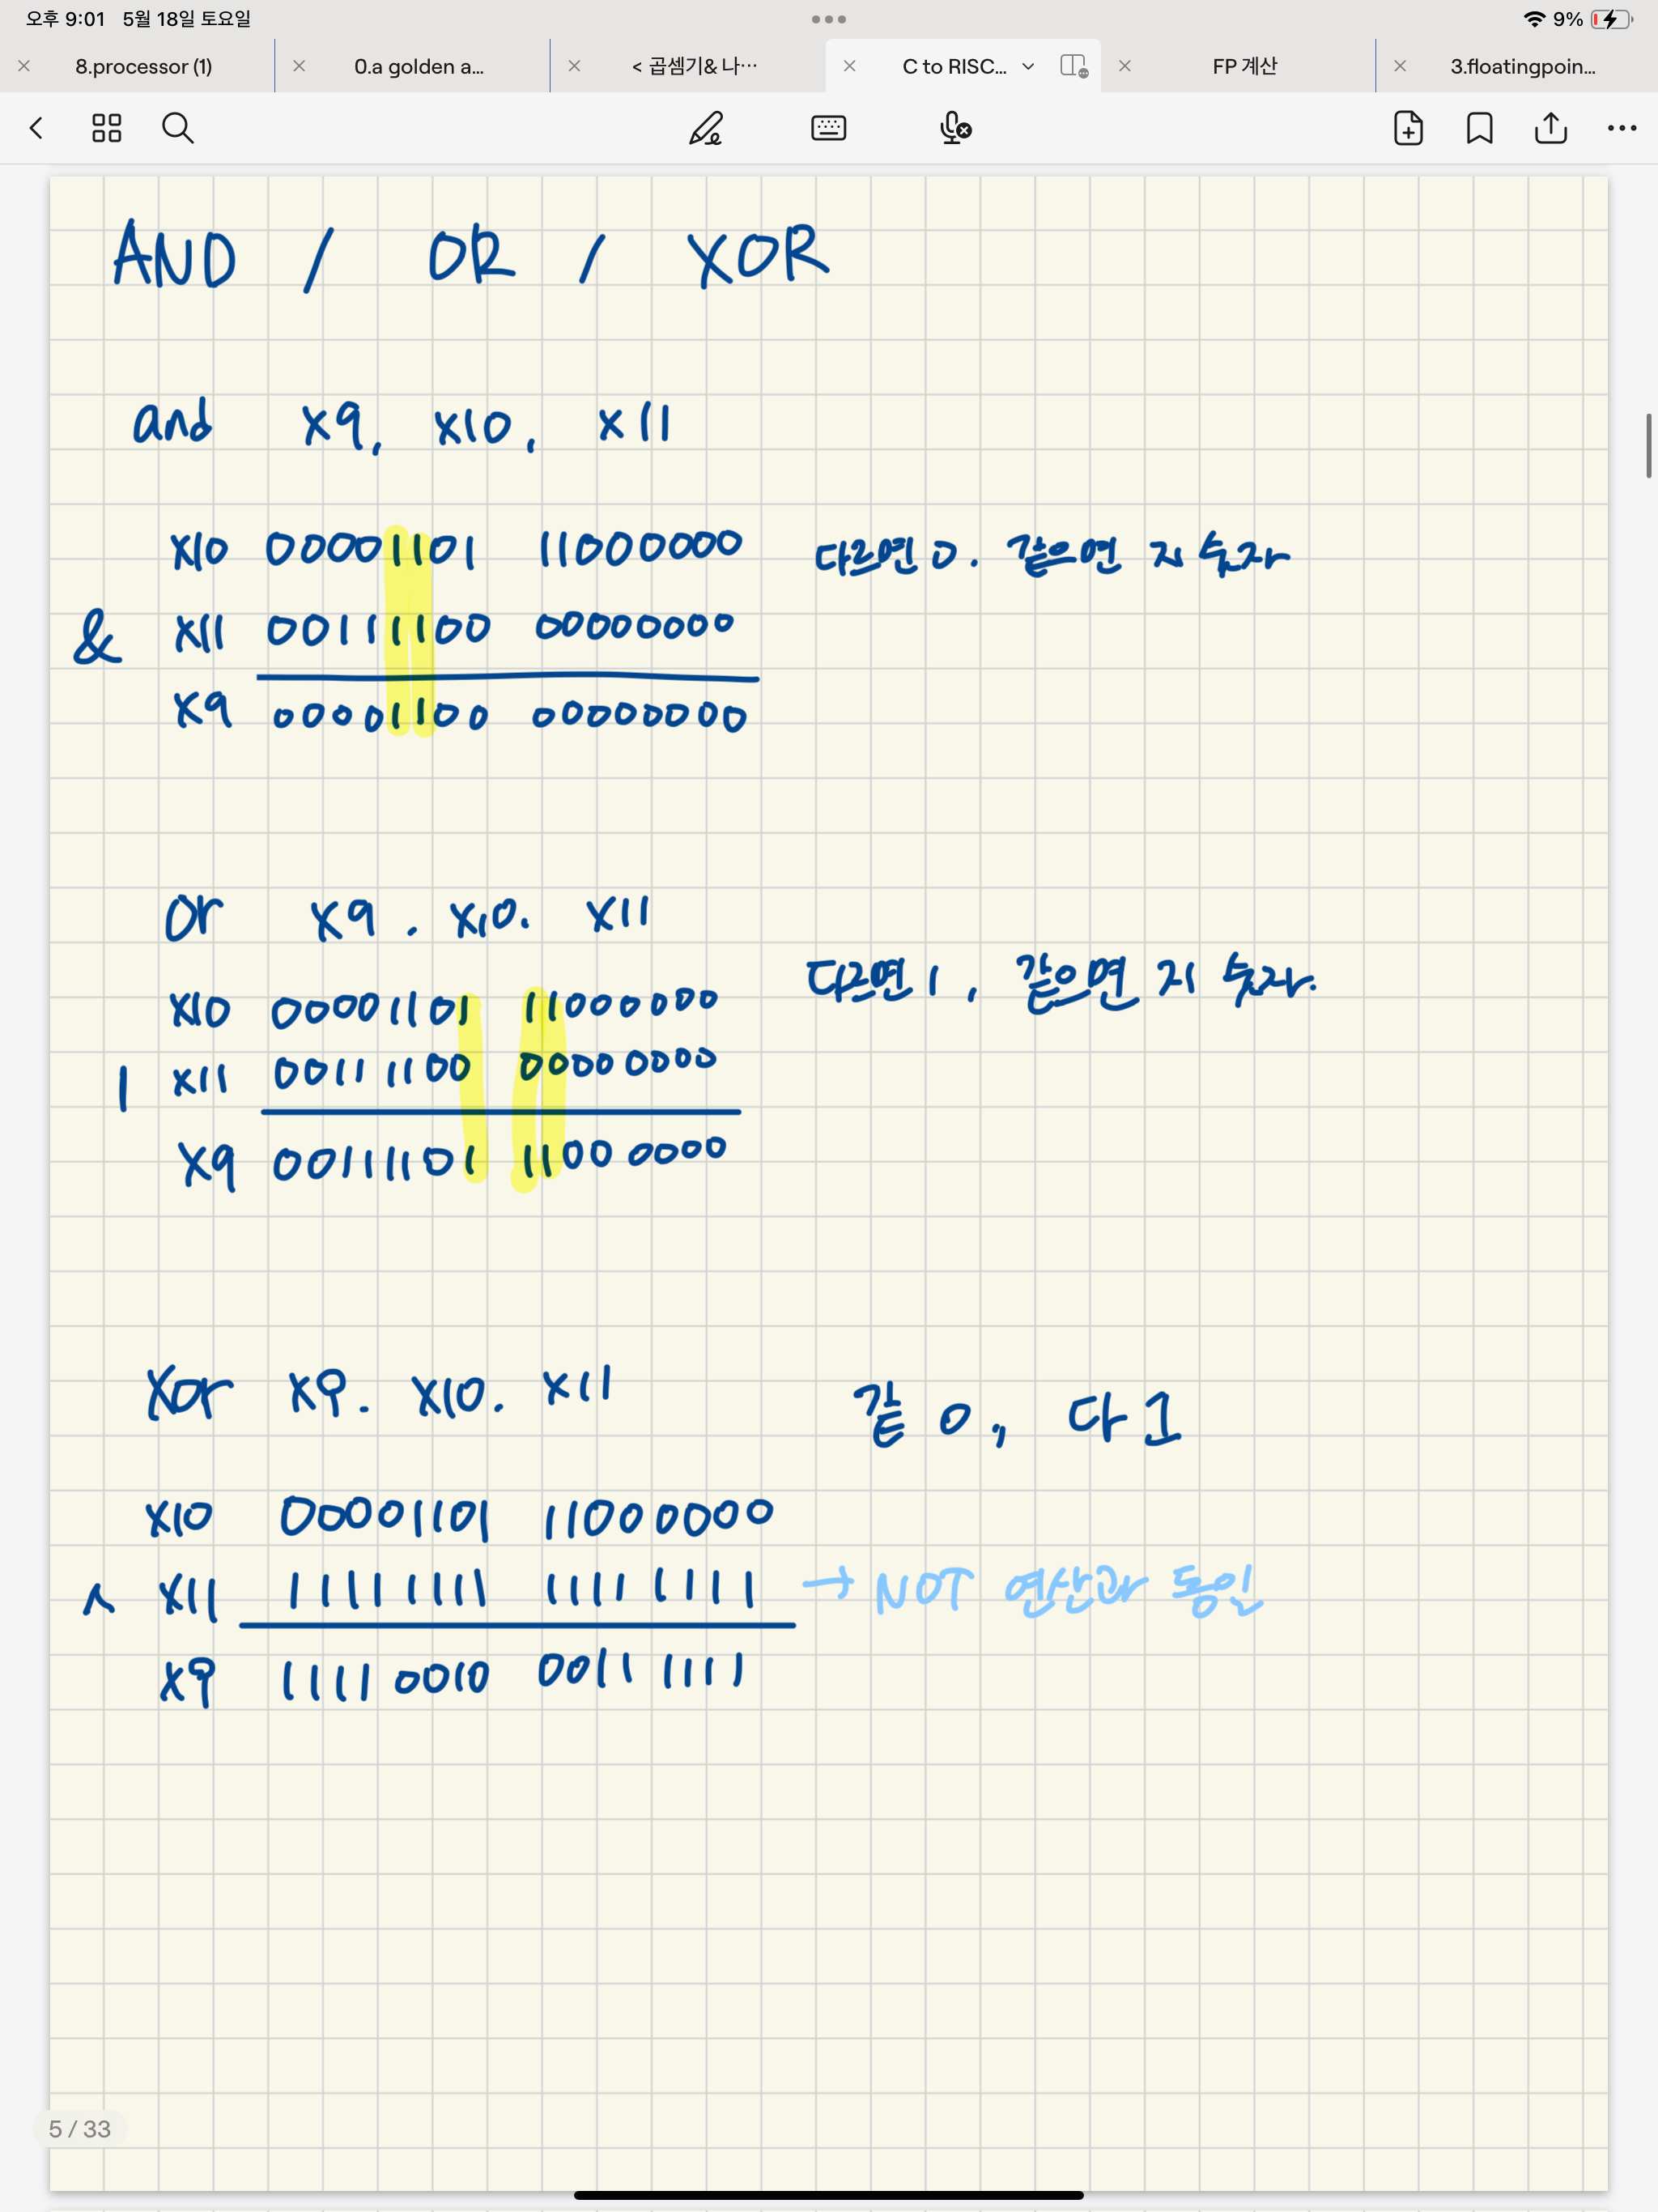 오후 9:01 5월 18일 토요일
9%
8.processor (1)
0.a golden a...
< 곱셈기& 나...
C to RISC...
FP 계산
3.floatingpoin...
AND / OR / XOR
and x9, x10, x11
x10 00001101 11000000 다르면 0. 같으면 지 숫자
& x11 00111100 00000000
x9 00001100 00000000
or x9. x10. x11
다르면 1, 같으면 지 숫자.
x10 00001101 11000000
| x11 00111100 00000000
x9 00111101 11000000
Xor x9. x10. x11 같 0, 다 1
x10 00001101 11000000
^ x11 11111111 11111111 → NOT 연산과 동일
x9 11110010 00111111
5 / 33